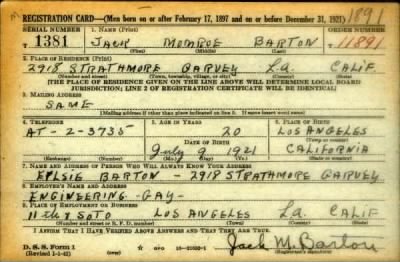 1891
REGISTRATION CARD—(Men born on or after February 17, 1897 and on or before December 31, 1921)
SERIAL NUMBER 1. NAME (Print) ORDER NUMBER
1381 JACK MONROE BARTON 11891
(First) (Middle) (Last)
2. PLACE OF RESIDENCE (Print)
2918 STRATHMORE GARVEY La. CALIF.
(Number and street) (Town, township, village, or city) (County) (State)
[THE PLACE OF RESIDENCE GIVEN ON THE LINE ABOVE WILL DETERMINE LOCAL BOARD
JURISDICTION; LINE 2 OF REGISTRATION CERTIFICATE WILL BE IDENTICAL]
3. MAILING ADDRESS
SAME
[Mailing address if other than place indicated on line 2. If same insert word same]
4. TELEPHONE 5. AGE IN YEARS 6. PLACE OF BIRTH
AT-2-3735 20 LOS ANGELES
DATE OF BIRTH (Town or county)
July 9 1921 CALIFORNIA
(Exchange) (Number) (Mo.) (Day) (Yr.) (State or country)
7. NAME AND ADDRESS OF PERSON WHO WILL ALWAYS KNOW YOUR ADDRESS
ELSIE BARTON - 2918 STRATHMORE GARVEY
8. EMPLOYER'S NAME AND ADDRESS
ENGINEERING-GAY-
9. PLACE OF EMPLOYMENT OR BUSINESS
11th & SOTO LOS ANGELES La. CALIF
(Number and street or R. F. D. number) (Town) (County) (State)
I AFFIRM THAT I HAVE VERIFIED ABOVE ANSWERS AND THAT THEY ARE TRUE.
D. S. S. Form 1 Jack M. Barton
(Revised 1-1-42) (Registrant's signature)